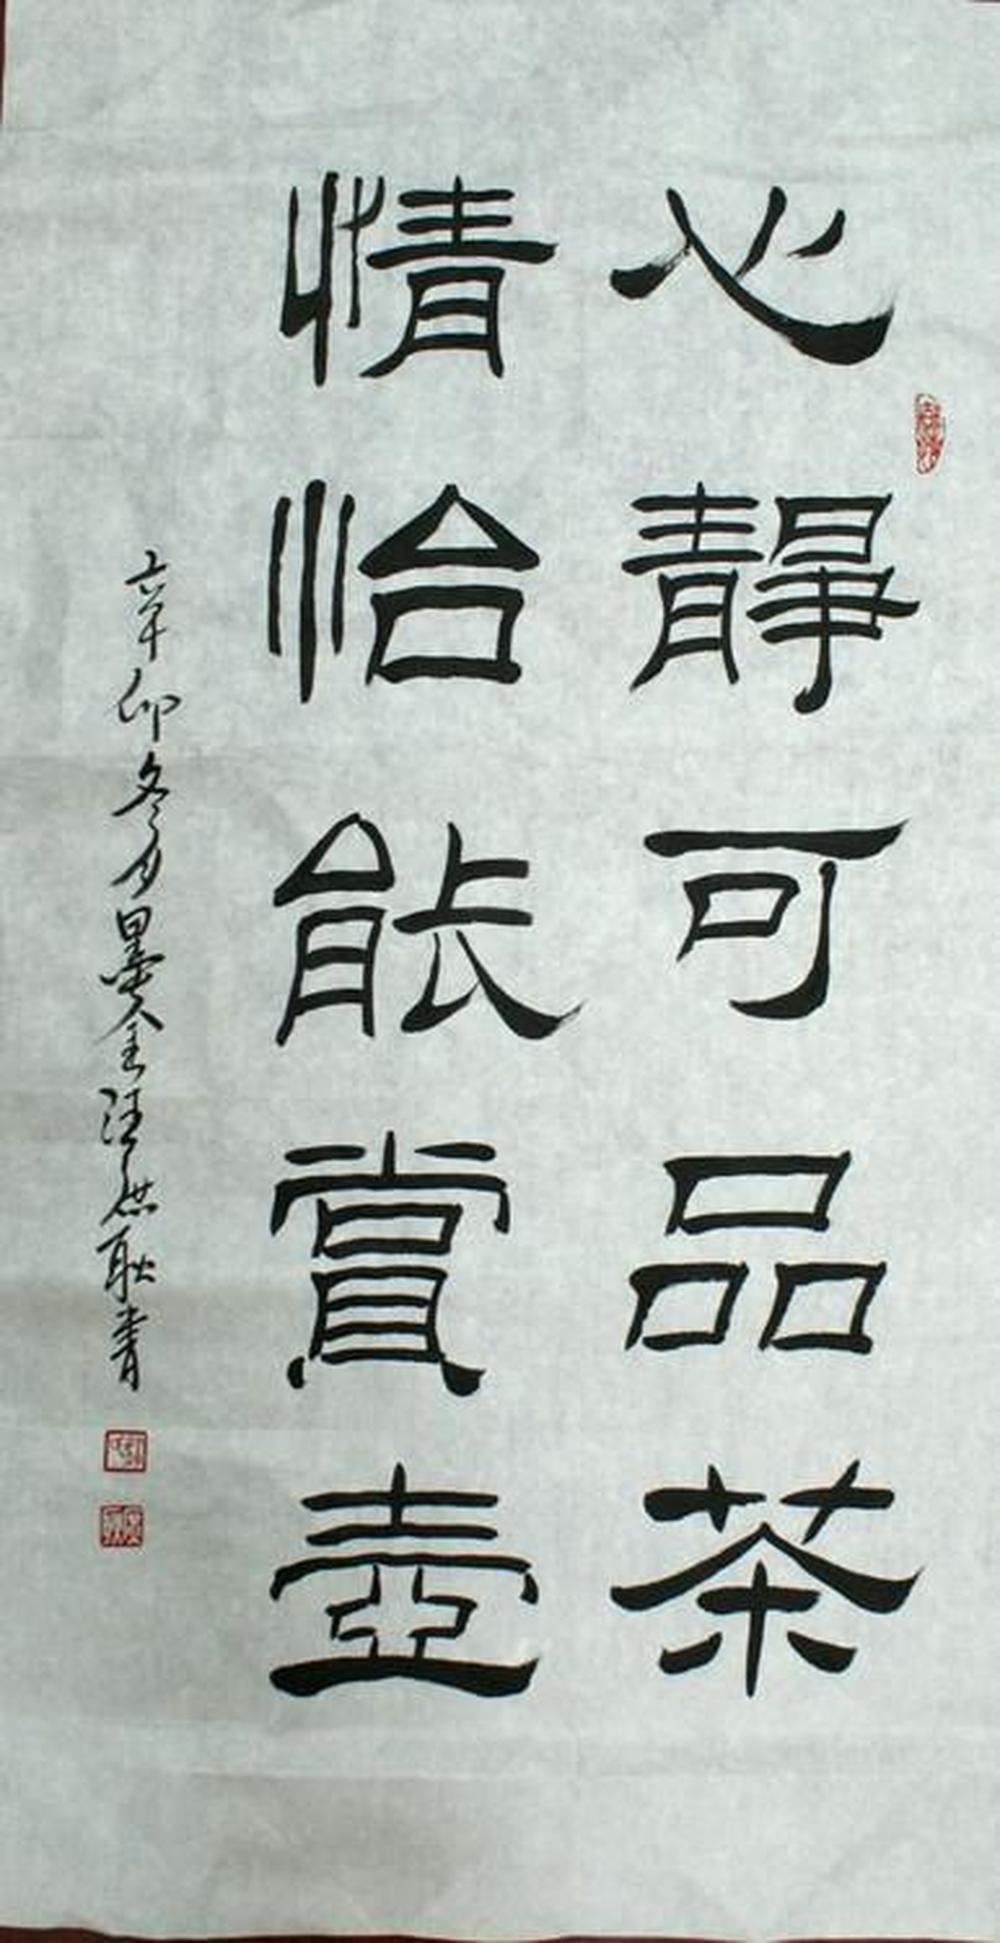 心靜可品茶
情怡能賞壺
辛卯冬月墨全汪洪耿書